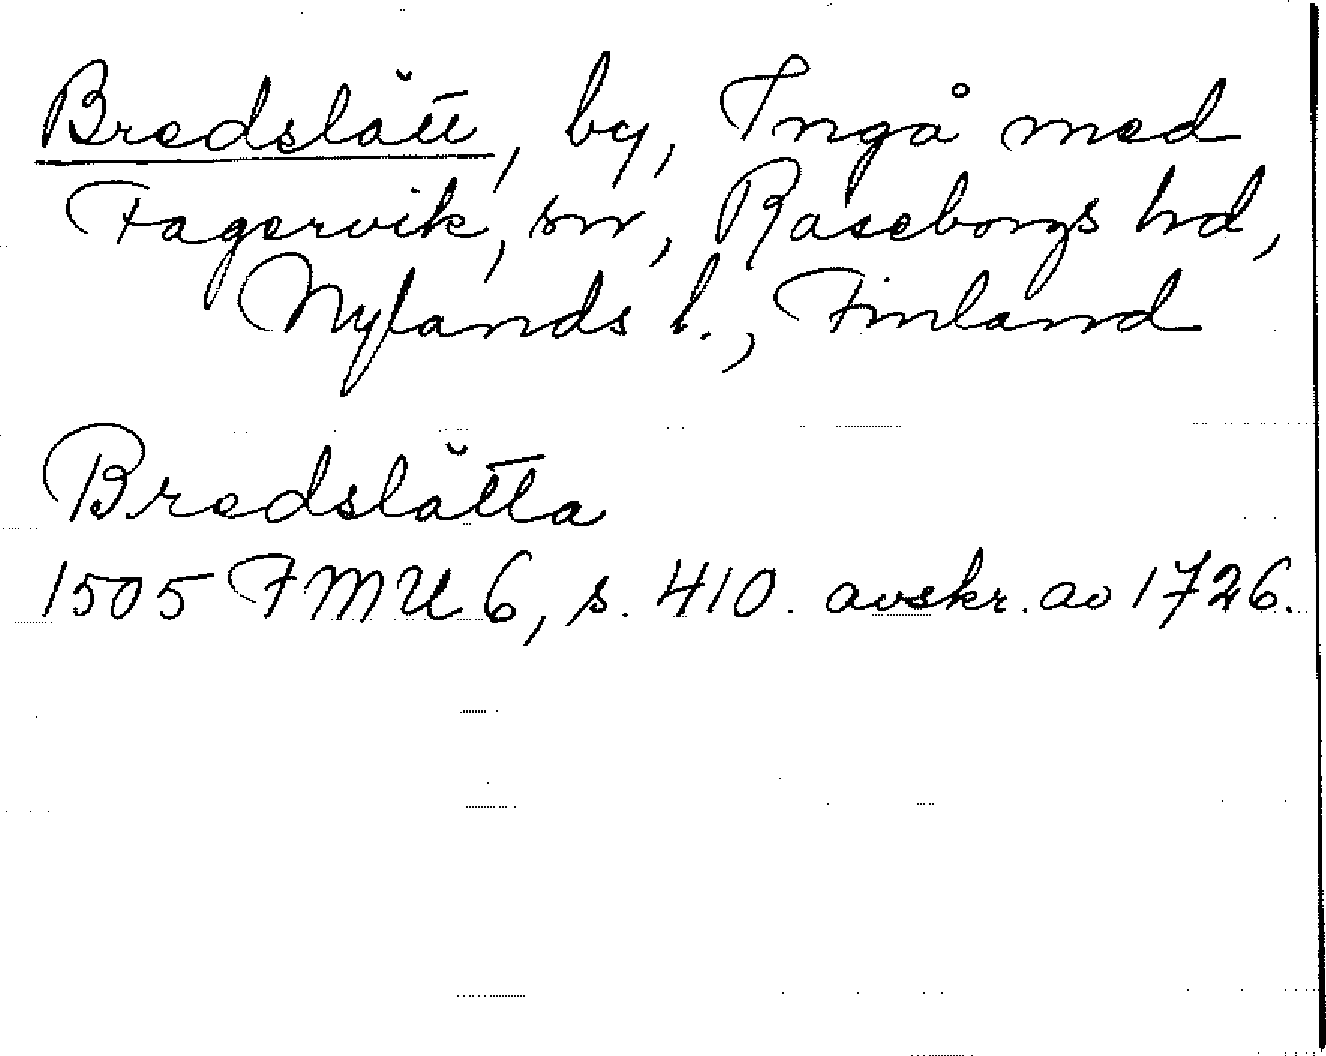 Bredslätt, by, Ingå med
Fagervik, sn, Raseborgs hd,
Nylands l., Finland
Bredslätta
1505 FMU 6, s. 410. avskr. av 1726.